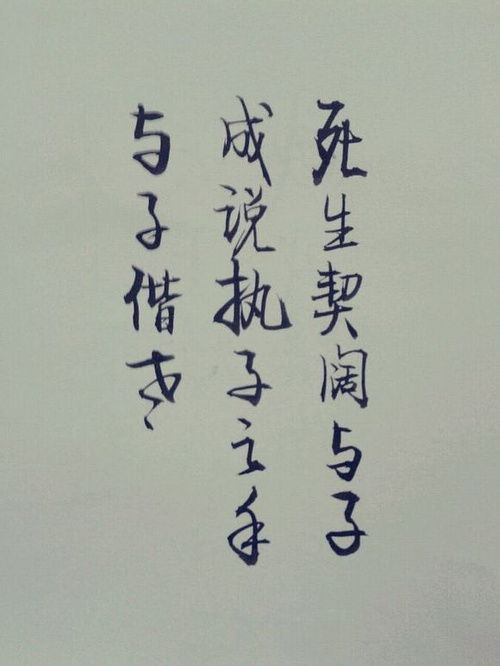 死生契阔与子
成说执子之手
与子偕老